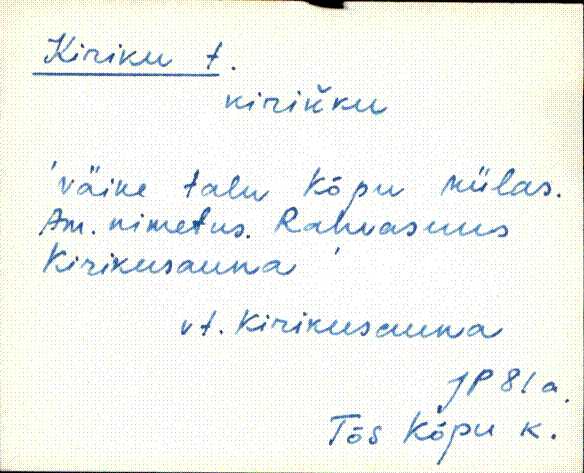 Kiriku t.
kirikku
'väike talu Kõpu külas.
Am. nimetus. Rahvasuus
Kirikusauna'
vt. Kirikusauna
JP 81 a.
Tõs Kõpu k.